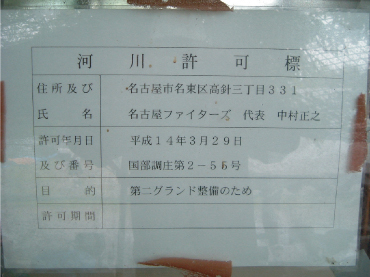 河川許可標
住所及び 名古屋市名東区高針三丁目331
氏名 名古屋ファイターズ 代表 中村正之
許可年月日 平成14年3月29日
及び番号 国部調庄第2-56号
目的 第二グランド整備のため
許可期間